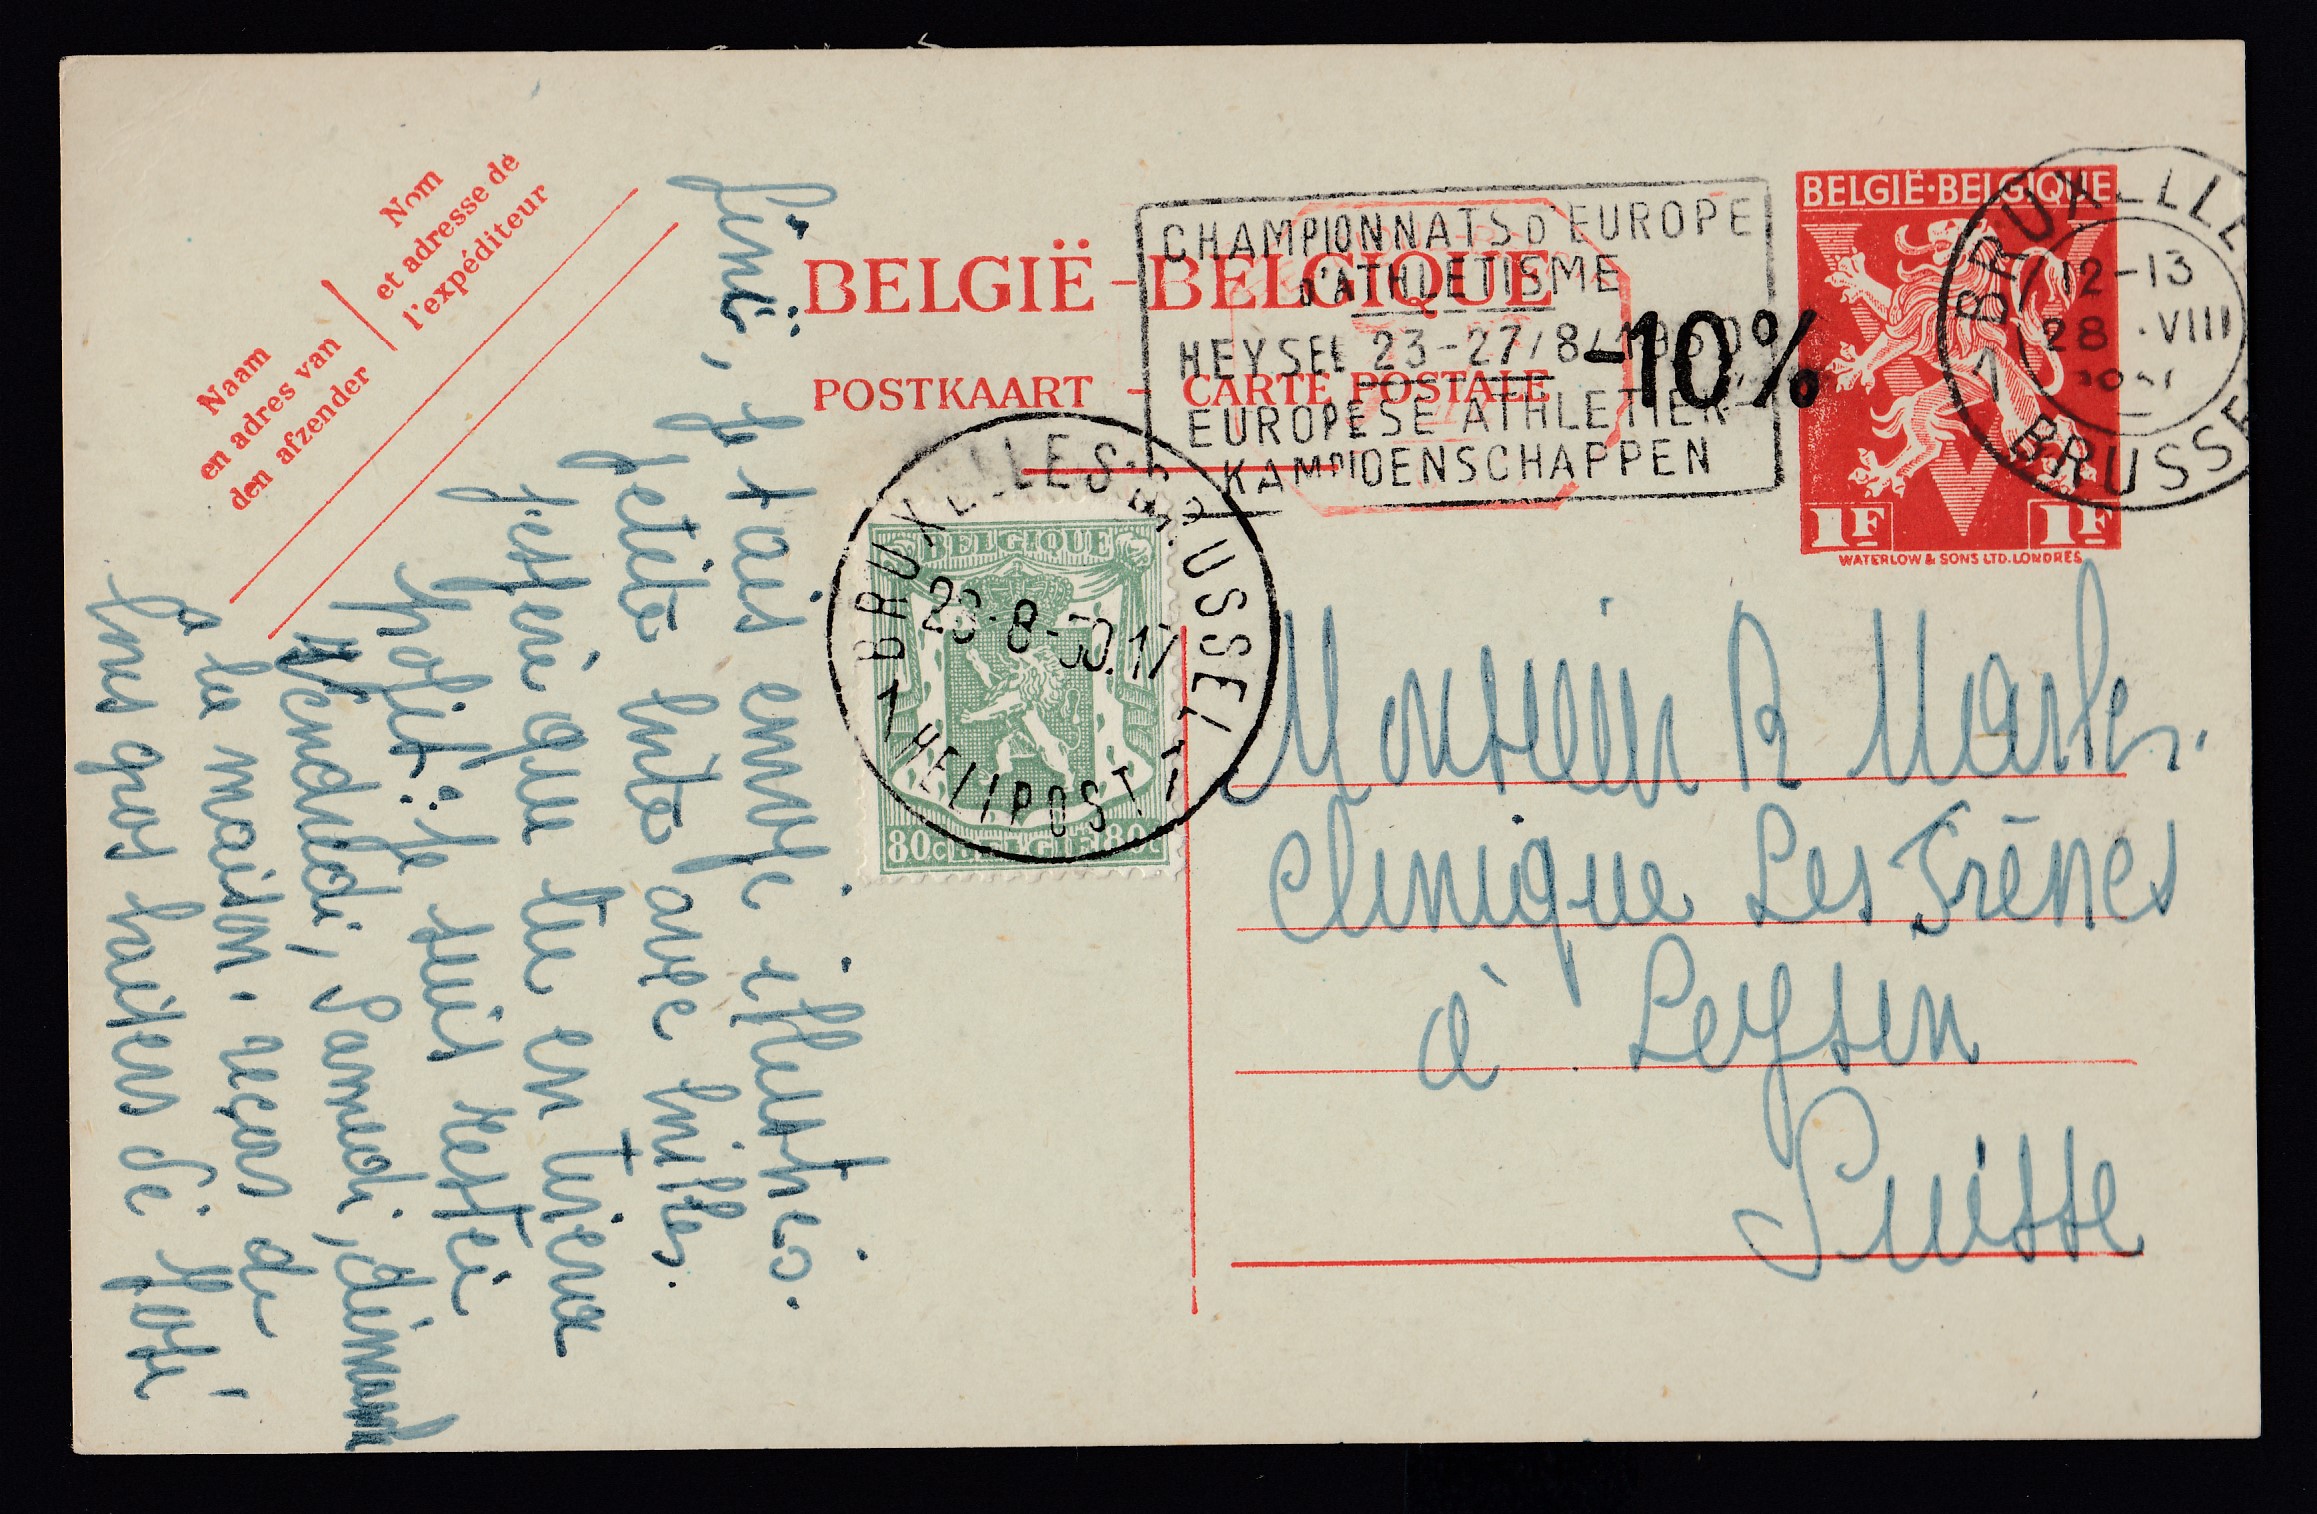 Nom
et adresse de
l'expéditeur
Naam
en adres van
den afzender
BELGIË-BELGIQUE
POSTKAART - CARTE POSTALE
CHAMPIONNATS D'EUROPE
D'ATHLETISME
HEYSEL 23-27/8/1950
EUROPESE ATHLETIEK
KAMPIOENSCHAPPEN
-10%
BELGIË·BELGIQUE
1F 1F
WATERLOW & SONS LTD. LONDRES
1 BRUXELLES
12-13
28 VIII
BRUSSEL
BRUXELLES-BRUSSEL
28-8-50.17
1 HELIPOST 1
BELGIQUE
80c BELGIË 80c
Monsieur R
Clinique Les Frênes
à Leysin
Suisse
je t'ais envoye illustrés.
petite luto avec billes.
j'espère que tu en tirera
profit. je suis resté
Vendredi, Samedi,
à la maison. reçois de
bons gros baisers de José